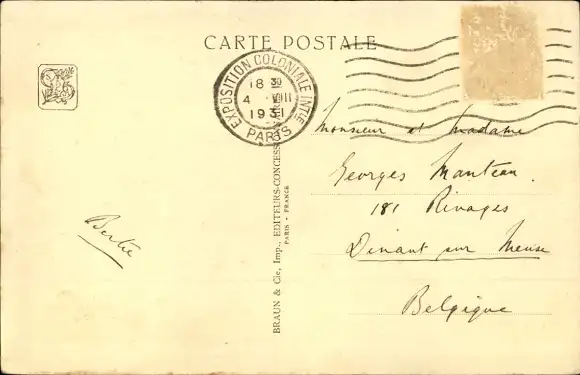 CARTE POSTALE
EXPOSITION COLONIALE INTLE
18 30
4 VIII
1931
PARIS
BRAUN & Cie, Imp., EDITEURS-CONCESS
PARIS - FRANCE
Bertie
Monsieur et Madame
Georges Manteau.
181 Rivages
Dinant sur Meuse
Belgique